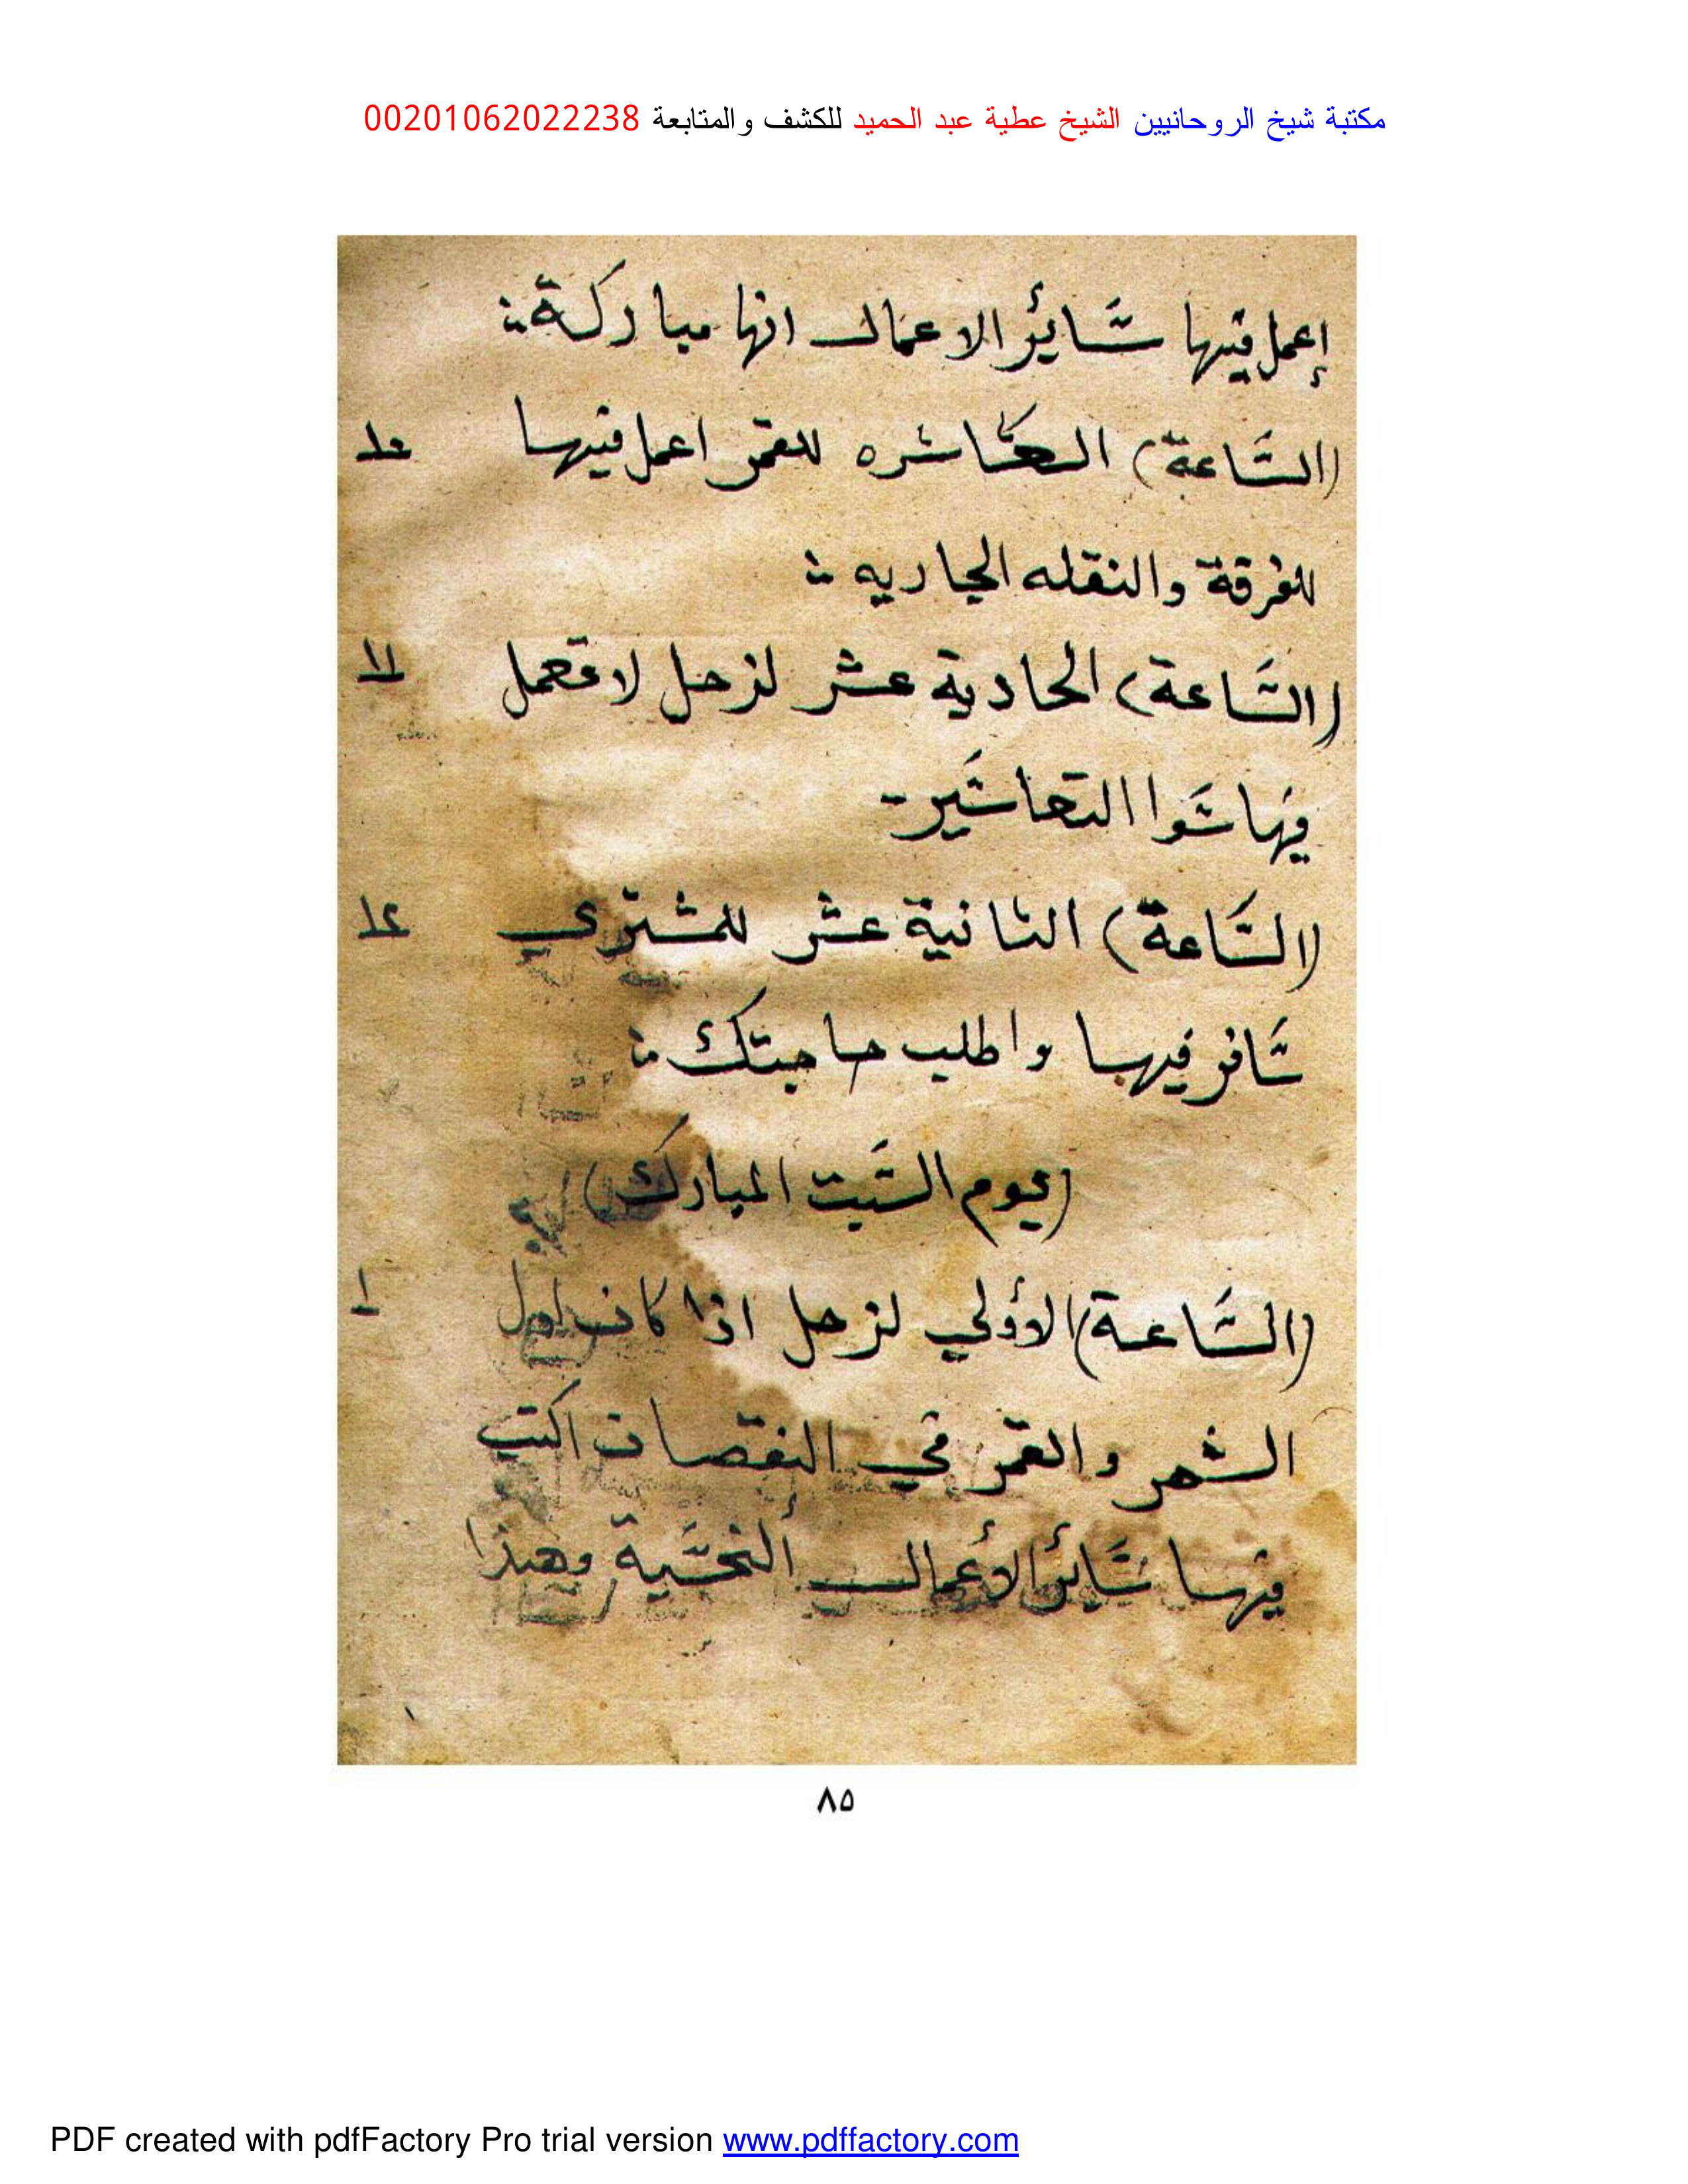 مكتبة شيخ الروحانيين الشيخ عطية عبد الحميد للكشف والمتابعة 00201062022238
إعمل فيها سَائر الاعمال انها مباركة
(السَاعة) العَاشره للقمر اعمل فيها
للفرقة والنقله الجاريه
(السَاعة) الحادية عشر لزحل لا تعمل
فيها سَوا التعاسَير
(السَاعة) الثانية عشر للمشتري
سَافر فيها واطلب حاجتك
(يوم السَبت المبارك)
(السَاعة) الأولي لزحل اذا كان اول
الشهر والقمر في النقصان اكتب
فيها سَائر الأعمال ألنحسَية وهذا
٨٥
PDF created with pdfFactory Pro trial version www.pdffactory.com